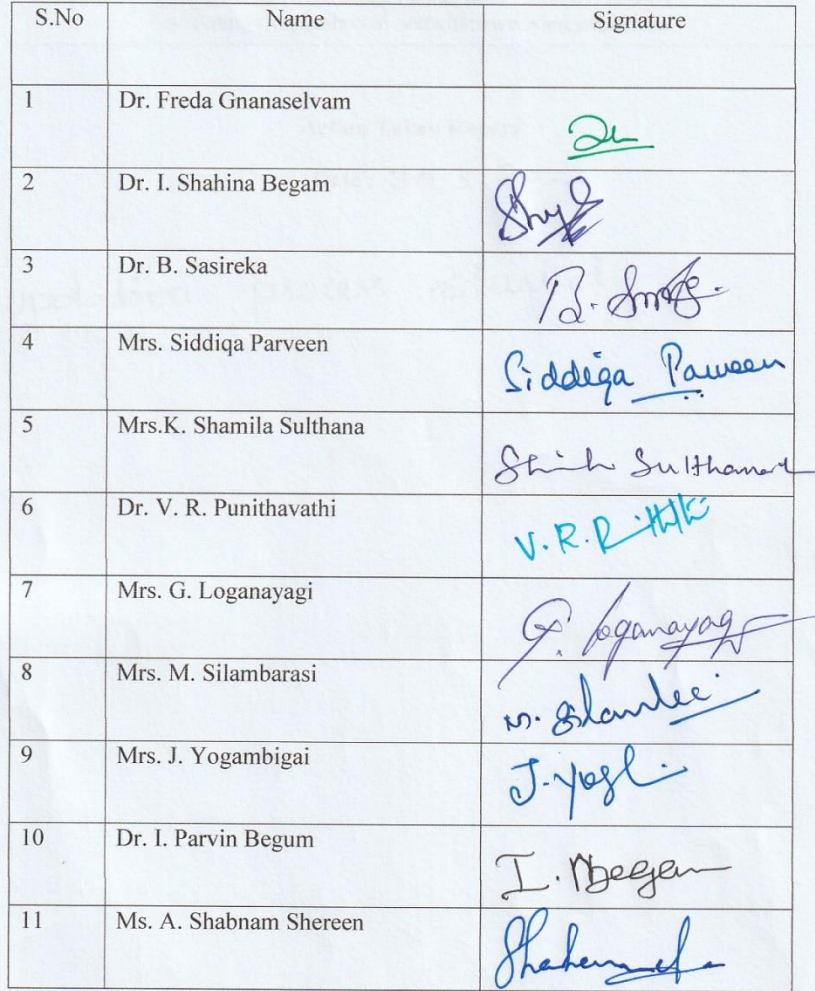 S.No Name Signature
1 Dr. Freda Gnanaselvam
2 Dr. I. Shahina Begam
3 Dr. B. Sasireka B.
4 Mrs. Siddiqa Parveen Siddiqa Parveen
5 Mrs.K. Shamila Sulthana Sulthana
6 Dr. V. R. Punithavathi V. R.
7 Mrs. G. Loganayagi G. Loganayagi
8 Mrs. M. Silambarasi M.
9 Mrs. J. Yogambigai J.
10 Dr. I. Parvin Begum I.
11 Ms. A. Shabnam Shereen